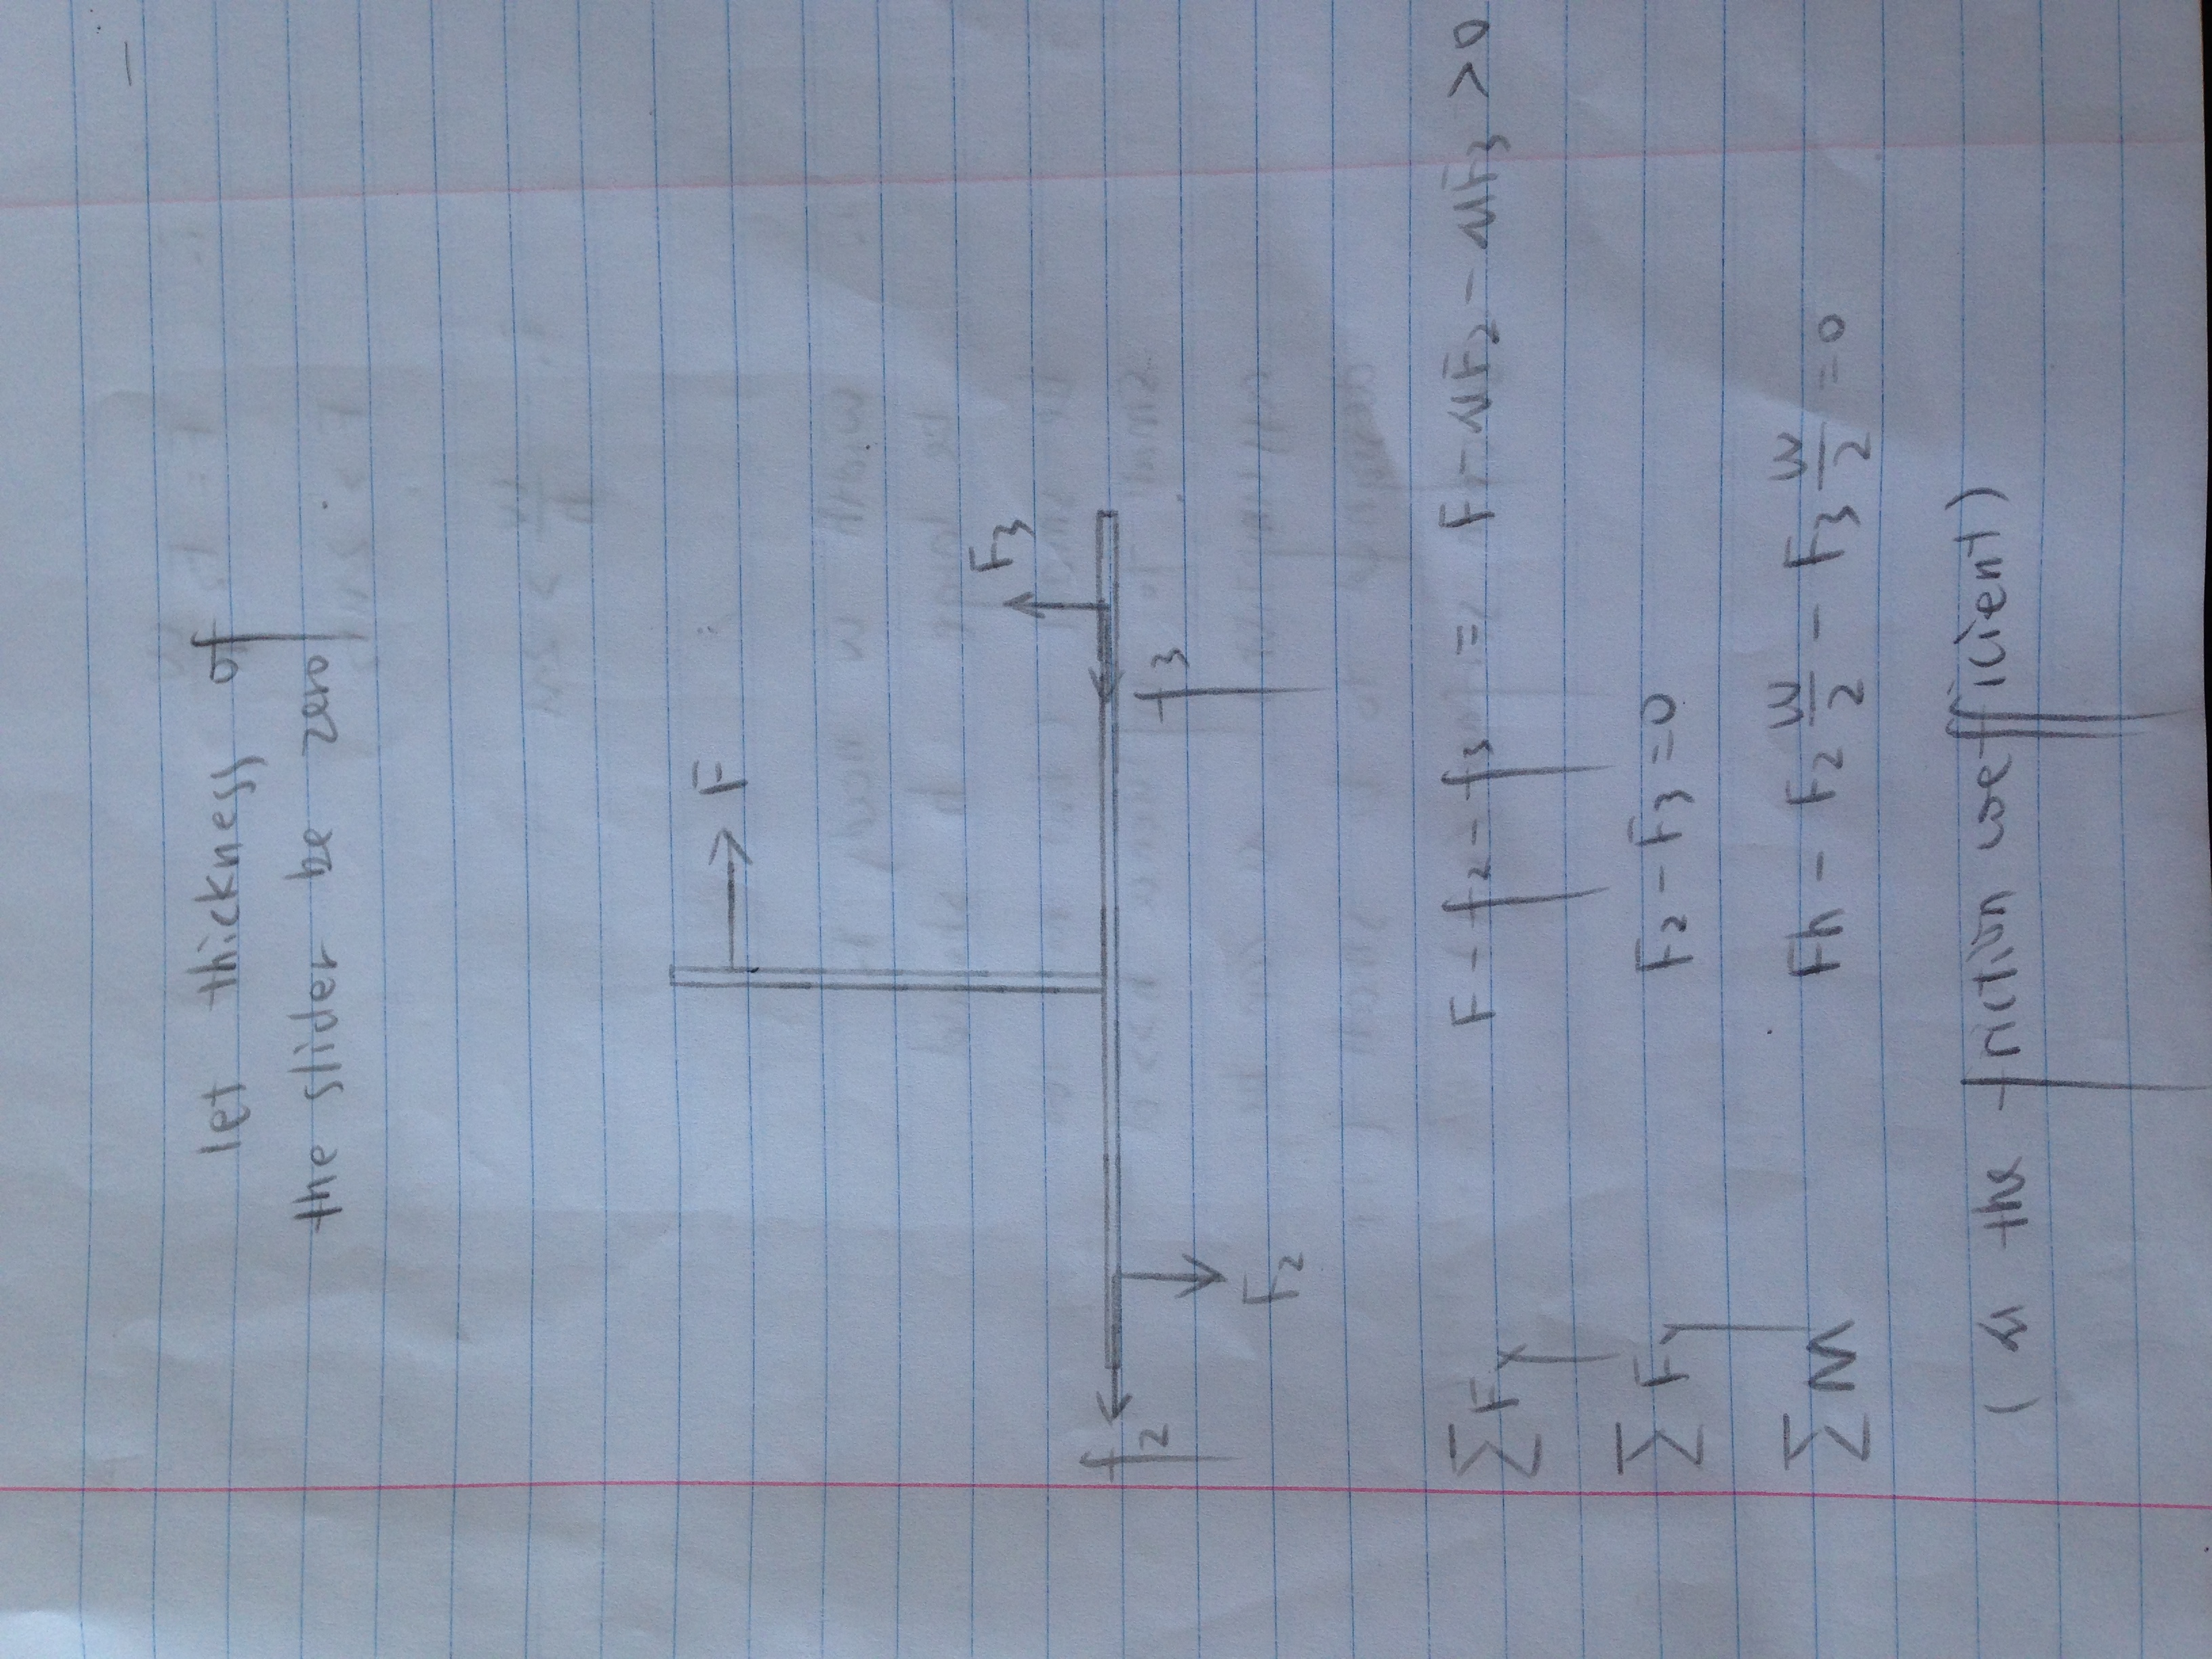 let thickness of
the slider be zero
F
F3
f3
f2
F2
ΣFx F - f2 - f3 = F - μF2 - μF3 > 0
ΣFy F2 - F3 = 0
ΣM Fh - F2 W/2 - F3 W/2 = 0
( μ the friction coefficient)